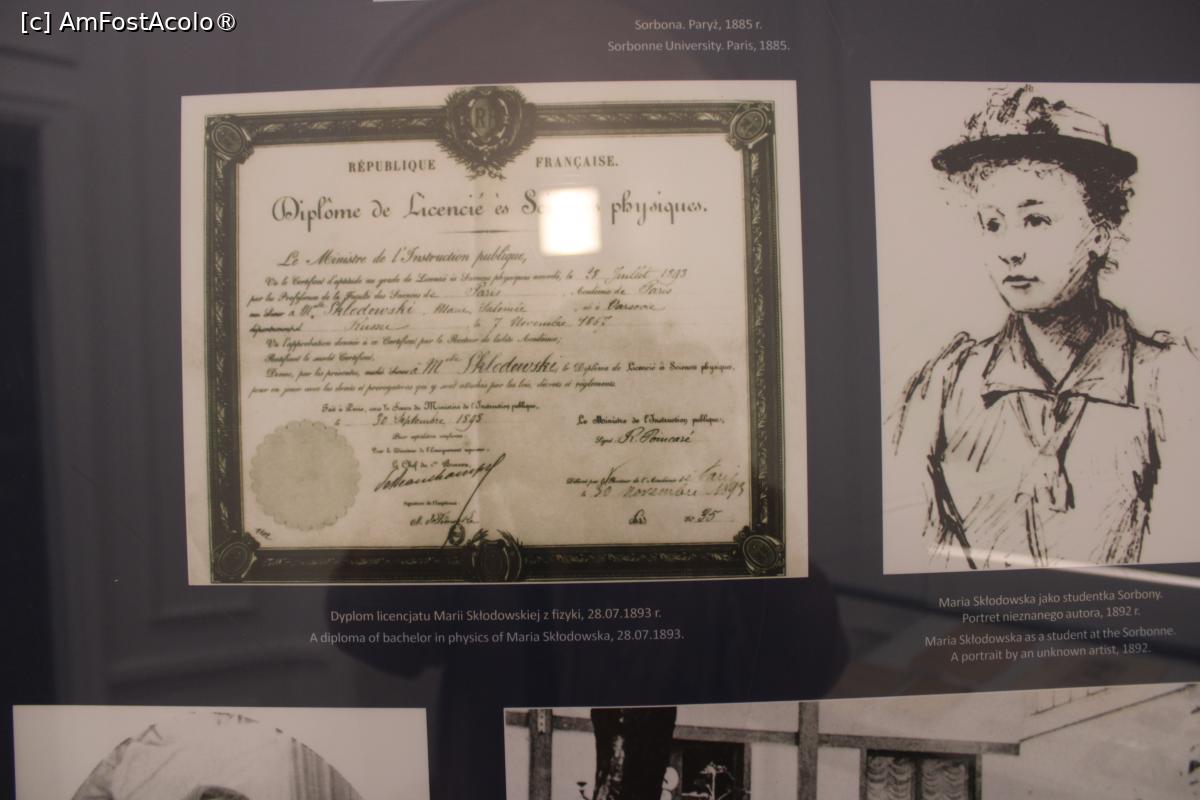 [c] AmFostAcolo®
Sorbona. Paryż, 1885 r.
Sorbonne University. Paris, 1885.
RÉPUBLIQUE FRANÇAISE.
Diplôme de Licencié ès physiques.
Le Ministre de l'Instruction publique,
Vu le Certificat d'aptitude au grade de Licencié ès Sciences physiques accordé, le 28 Juillet 1893
par les Professeurs de la Faculté des Sciences de Paris, Académie de Paris
Mlle Sklodowski, Marie Salomée, né à Varsovie
Russie le 7 Novembre 1867
Vu l'approbation donnée à ce Certificat par le Recteur de ladite Académie;
Ratifiant le susdit Certificat,
Donne, par les présentes, à Mlle Sklodowski, le Diplôme de Licencié ès Sciences physiques,
pour en jouir avec les droits et prérogatives qui y sont attachés par les lois, décrets et règlements.
Fait à Paris, sous le Sceau du Ministère de l'Instruction publique,
le 30 Septembre 1893
Pour expédition conforme
Le Chef du Bureau
Le Ministre de l'Instruction publique,
Signé R. Poincaré
Délivré par le Recteur de l'Académie de Paris
le 30 novembre 1893
Dyplom licencjatu Marii Skłodowskiej z fizyki, 28.07.1893 r.
A diploma of bachelor in physics of Maria Skłodowska, 28.07.1893.
Maria Skłodowska jako studentka Sorbony.
Portret nieznanego autora, 1892 r.
Maria Skłodowska as a student at the Sorbonne.
A portrait by an unknown artist, 1892.